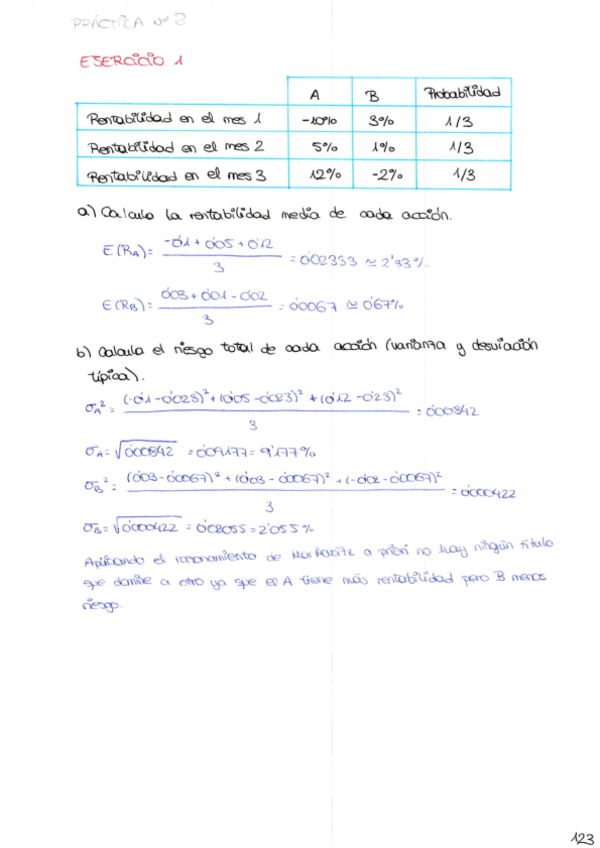 PRÁCTICA Nº 8
EJERCICIO 1
A B Probabilidad
Rentabilidad en el mes 1 -10% 3% 1/3
Rentabilidad en el mes 2 5% 1% 1/3
Rentabilidad en el mes 3 12% -2% 1/3
a) Calcula la rentabilidad media de cada acción.
E(RA)= (-0'1 + 0'05 + 0'12) / 3 = 0'02333 ≃ 2'33%
E(RB)= (0'03 + 0'01 - 0'02) / 3 = 0'0067 ≃ 0'67%
b) Calcula el riesgo total de cada acción (varianza y desviación
típica).
σA² = ((-0'1 - 0'023)² + (0'05 - 0'023)² + (0'12 - 0'23)²) / 3 = 0'00842
σA = √0'00842 = 0'09177 = 9'177%
σB² = ((0'03 - 0'0067)² + (0'03 - 0'0067)² + (-0'02 - 0'0067)²) / 3 = 0'000422
σB = √0'000422 = 0'02055 = 2'055%
Aplicando el razonamiento de Markowitz a priori no hay ningún título
que domine a otro ya que el A tiene más rentabilidad pero B menos
riesgo.
123